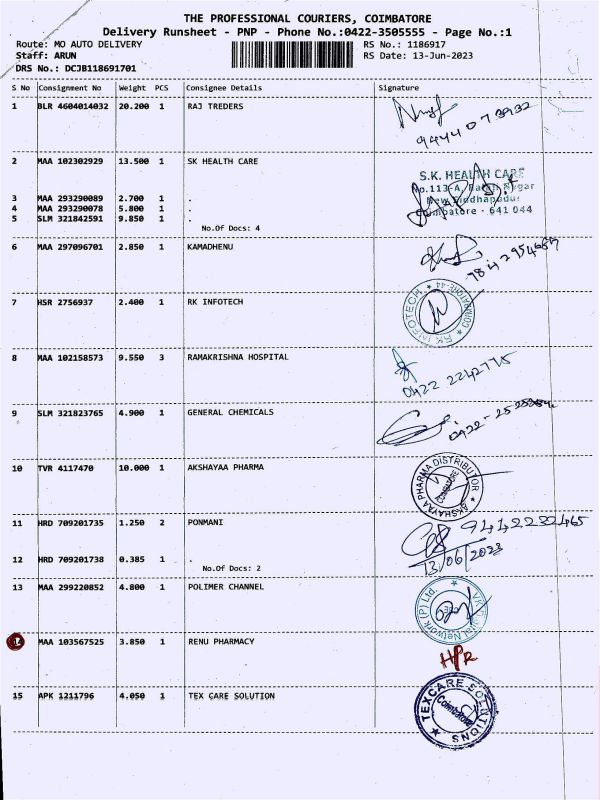 THE PROFESSIONAL COURIERS, COIMBATORE
Delivery Runsheet - PNP - Phone No.:0422-3505555 - Page No.:1
Route: MO AUTO DELIVERY RS No.: 1186917
Staff: ARUN RS Date: 13-Jun-2023
DRS No.: DCJB118691701
S No Consignment No Weight PCS Consignee Details Signature
1 BLR 4604014032 20.200 1 RAJ TREDERS
9444073932
2 MAA 102302929 13.500 1 SK HEALTH CARE
S.K. HEALTH CARE
No.113-A, Nagar
New Siddhapudur
Coimbatore - 641 044
3 MAA 293290089 2.700 1 .
4 MAA 293290078 5.800 1 .
5 SLM 321842591 9.850 1 .
No.Of Docs: 4
6 MAA 297096701 2.850 1 KAMADHENU
7 HSR 2756937 2.400 1 RK INFOTECH
RK INFOTECH COIMBATORE-44
8 MAA 102158573 9.550 3 RAMAKRISHNA HOSPITAL
0422
9 SLM 321823765 4.900 1 GENERAL CHEMICALS
0422-
10 TVR 4117470 10.000 1 AKSHAYAA PHARMA
AKSHAYAA PHARMA DISTRIBUTOR
COIMBATORE
11 HRD 709201735 1.250 2 PONMANI
9442232465
13/06/2023
12 HRD 709201738 0.385 1 .
No.Of Docs: 2
13 MAA 299220852 4.800 1 POLIMER CHANNEL
Network (P) Ltd.
14 MAA 103567525 3.850 1 RENU PHARMACY
HPR
15 APK 1211796 4.050 1 TEX CARE SOLUTION
TEXCARE SOLUTIONS
Coimbatore